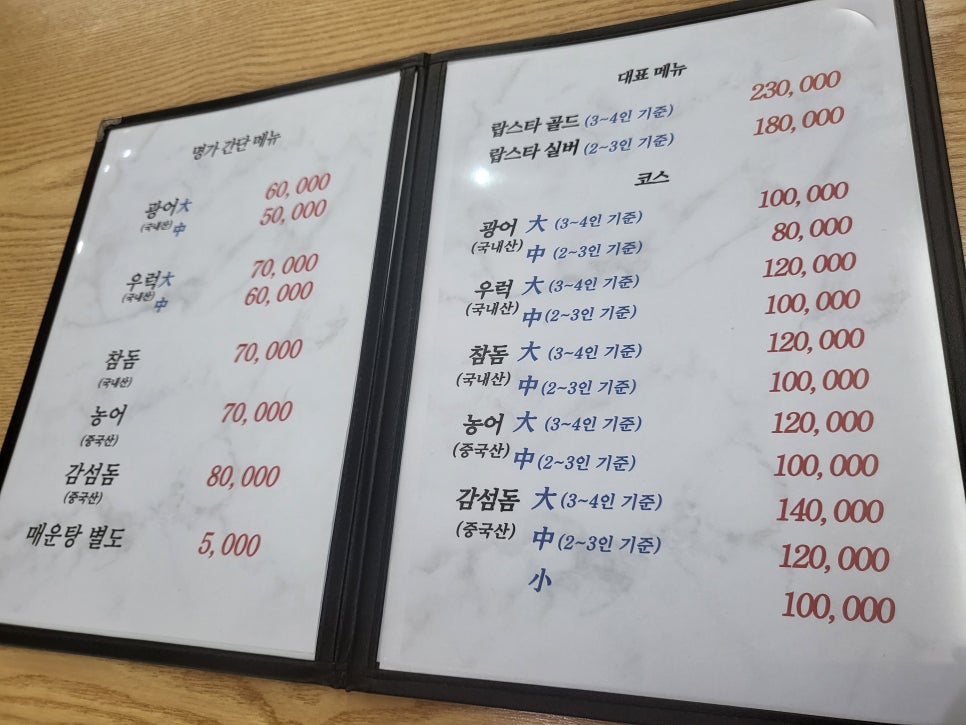 명가 간단 메뉴
광어大 60,000
(국내산)中 50,000
우럭大 70,000
(국내산)中 60,000
참돔 70,000
(국내산)
농어 70,000
(중국산)
감섬돔 80,000
(중국산)
매운탕 별도 5,000
대표 메뉴
랍스타 골드 (3~4인 기준) 230,000
랍스타 실버 (2~3인 기준) 180,000
코스
광어 大 (3~4인 기준) 100,000
(국내산) 中 (2~3인 기준) 80,000
우럭 大 (3~4인 기준) 120,000
(국내산) 中 (2~3인 기준) 100,000
참돔 大 (3~4인 기준) 120,000
(국내산) 中 (2~3인 기준) 100,000
농어 大 (3~4인 기준) 120,000
(중국산) 中 (2~3인 기준) 100,000
감섬돔 大 (3~4인 기준) 140,000
(중국산) 中 (2~3인 기준) 120,000
小 100,000